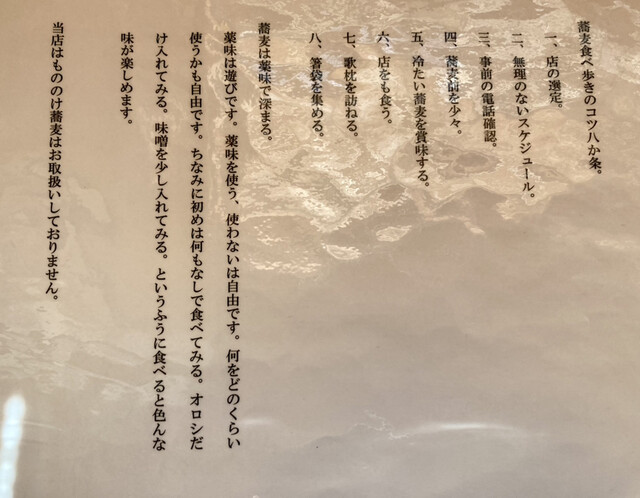 蕎麦食べ歩きのコツ八か条。
一、店の選定。
二、無理のないスケジュール。
三、事前の電話確認。
四、蕎麦前を少々。
五、冷たい蕎麦を賞味する。
六、店をも食う。
七、歌枕を訪ねる。
八、箸袋を集める。
蕎麦は薬味で深まる。
薬味は遊びです。薬味を使う、使わないは自由です。何をどのくらい
使うかも自由です。ちなみに初めは何もなしで食べてみる。オロシだ
け入れてみる。味噌を少し入れてみる。というふうに食べると色んな
味が楽しめます。
当店はもののけ蕎麦はお取扱いしておりません。